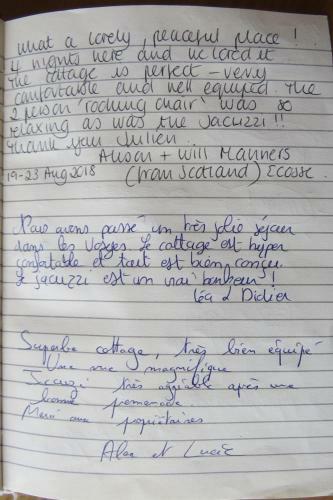 What a lovely, peaceful place !
4 nights here and we loved it
The cottage is perfect – very
comfortable and well equiped. The
2 person 'rocking chair' was so
relaxing as was the jacuzzi !!
Thank you Julien.
Alison + Will Manners
19-23 Aug 2018 (from Scotland) Ecosse.
Nous avons passé un très jolie séjour
dans les Vosges. Le cottage est hyper
confortable et tout est bien conçu.
Le jacuzzi est un vrai bonheur !
Léa & Didier
Superbe cottage, très bien équipé
Une vue magnifique
Jacuzzi très agréable après une
bonne promenade
Merci aux propriétaires
Alex et Lucie